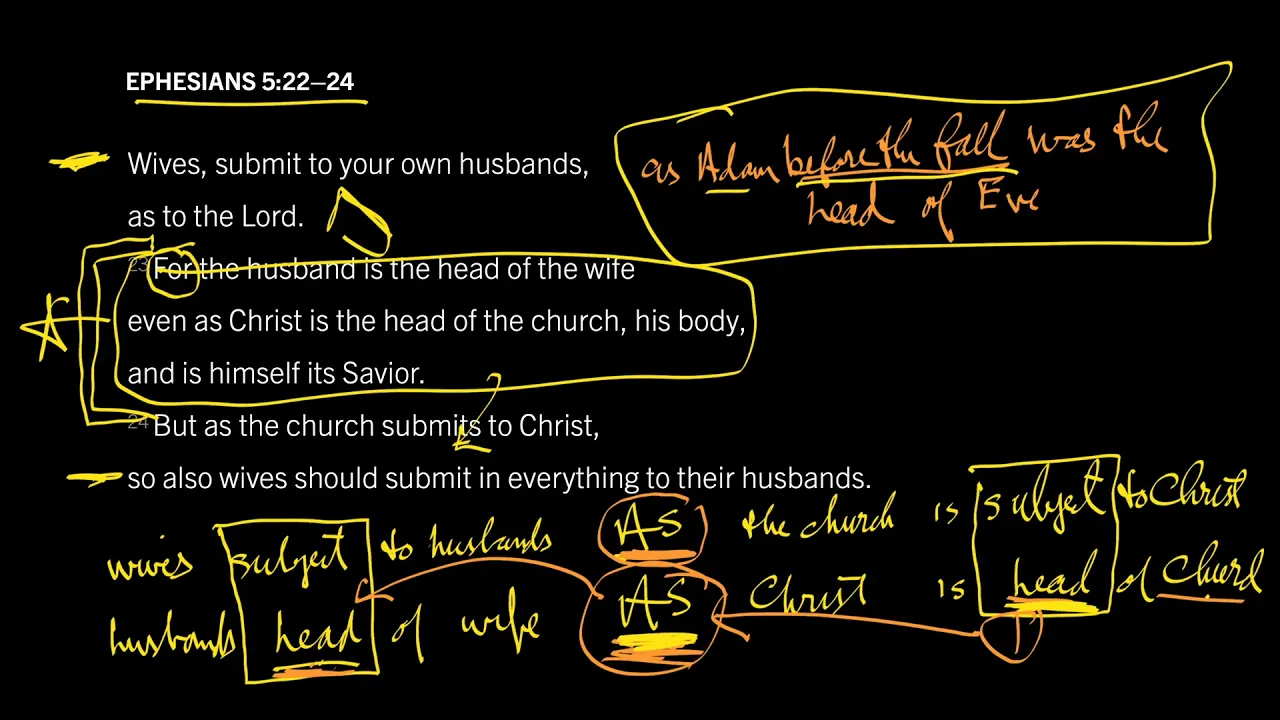 EPHESIANS 5:22–24
as Adam before the fall was the
head of Eve
Wives, submit to your own husbands,
as to the Lord.
23 For the husband is the head of the wife
even as Christ is the head of the church, his body,
and is himself its Savior.
24 But as the church submits to Christ,
so also wives should submit in everything to their husbands.
wives subject to husbands AS the church is subject to Christ
husbands head of wife AS Christ is head of Church
1